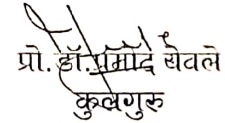 प्रो. डॉ. प्रमोद येवले
कुलगुरु